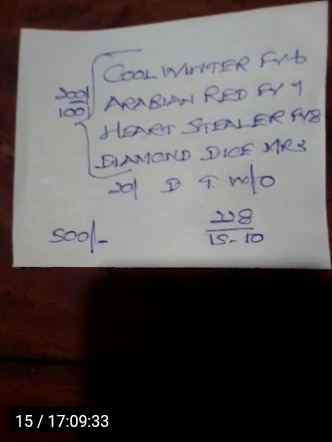 COOL WINTER FV6
200/ ARABIAN RED FV 9
100/ HEART STEALER FV8
DIAMOND DICE MR3
20/ D T W/O
500/- 228
15-10
15 / 17:09:33